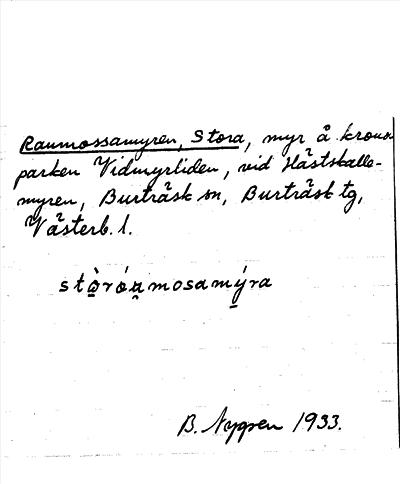 Raumossamyren, Stora, myr å krono-
parken Vidmyrliden, vid Hästskalle-
myren, Burträsk sn, Burträsk tg,
Västerb. l.
stò̱róa̯mosamý̱ra
B. Nygren 1933.